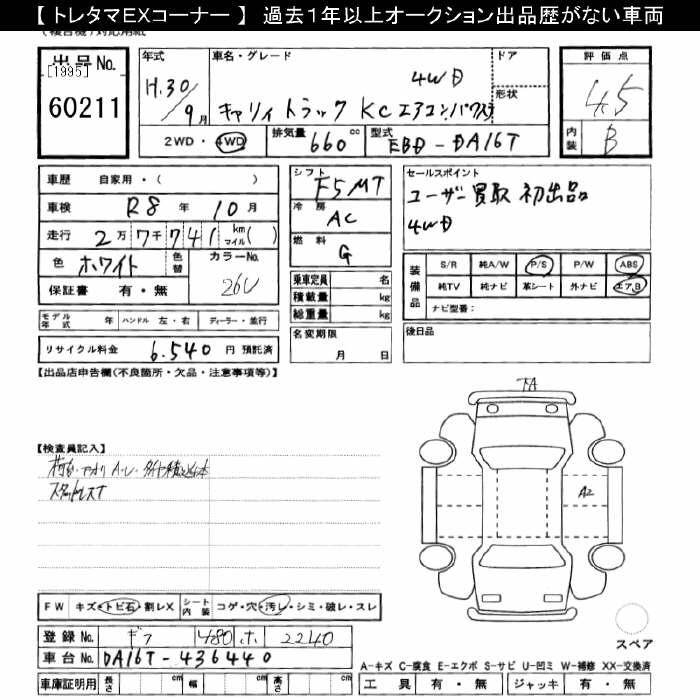 【 トレタマEXコーナー 】 過去１年以上オークション出品歴がない車両
出品No.
[1995]
60211
年式
H.30/9月
車名・グレード
4WD
キャリィトラック KCエアコン.パワステ
ドア
形状
2WD・4WD
排気量 660 cc
型式 EBD-DA16T
評価点
4.5
内装 B
車歴 自家用・( )
車検 R8 年 10 月
走行 2万7千741 km マイル( )
色 ホワイト 色替
カラーNo. 26U
保証書 有・無
シフト F5MT
冷房 AC
燃料 G
乗車定員 名
積載量 kg
総重量 kg
セールスポイント
ユーザー買取 初出品
4WD
装備品
S/R 純A/W P/S P/W ABS
純TV 純ナビ 革シート 外ナビ エアB
ナビ型番:
モデル年式 年 ハンドル 左・右 ディーラー・並行
リサイクル料金 6.540 円 預託済
名変期限 月 日
後日品
【出品店申告欄(不良箇所・欠品・注意事項等)】
【検査員記入】
スタッドレスT
A2
FW キズ・トビ石・割レX
シート内装 コゲ・穴・汚レ・シミ・破レ・スレ
登録No. ギフ 480 ホ 2240
車台No. DA16T-436440
車庫証明用 長さ cm 幅 cm 高さ cm
スペア
A-キズ C-腐食 E-エクボ S-サビ U-凹ミ W-補修 XX-交換済
工具 有・無 ジャッキ 有・無